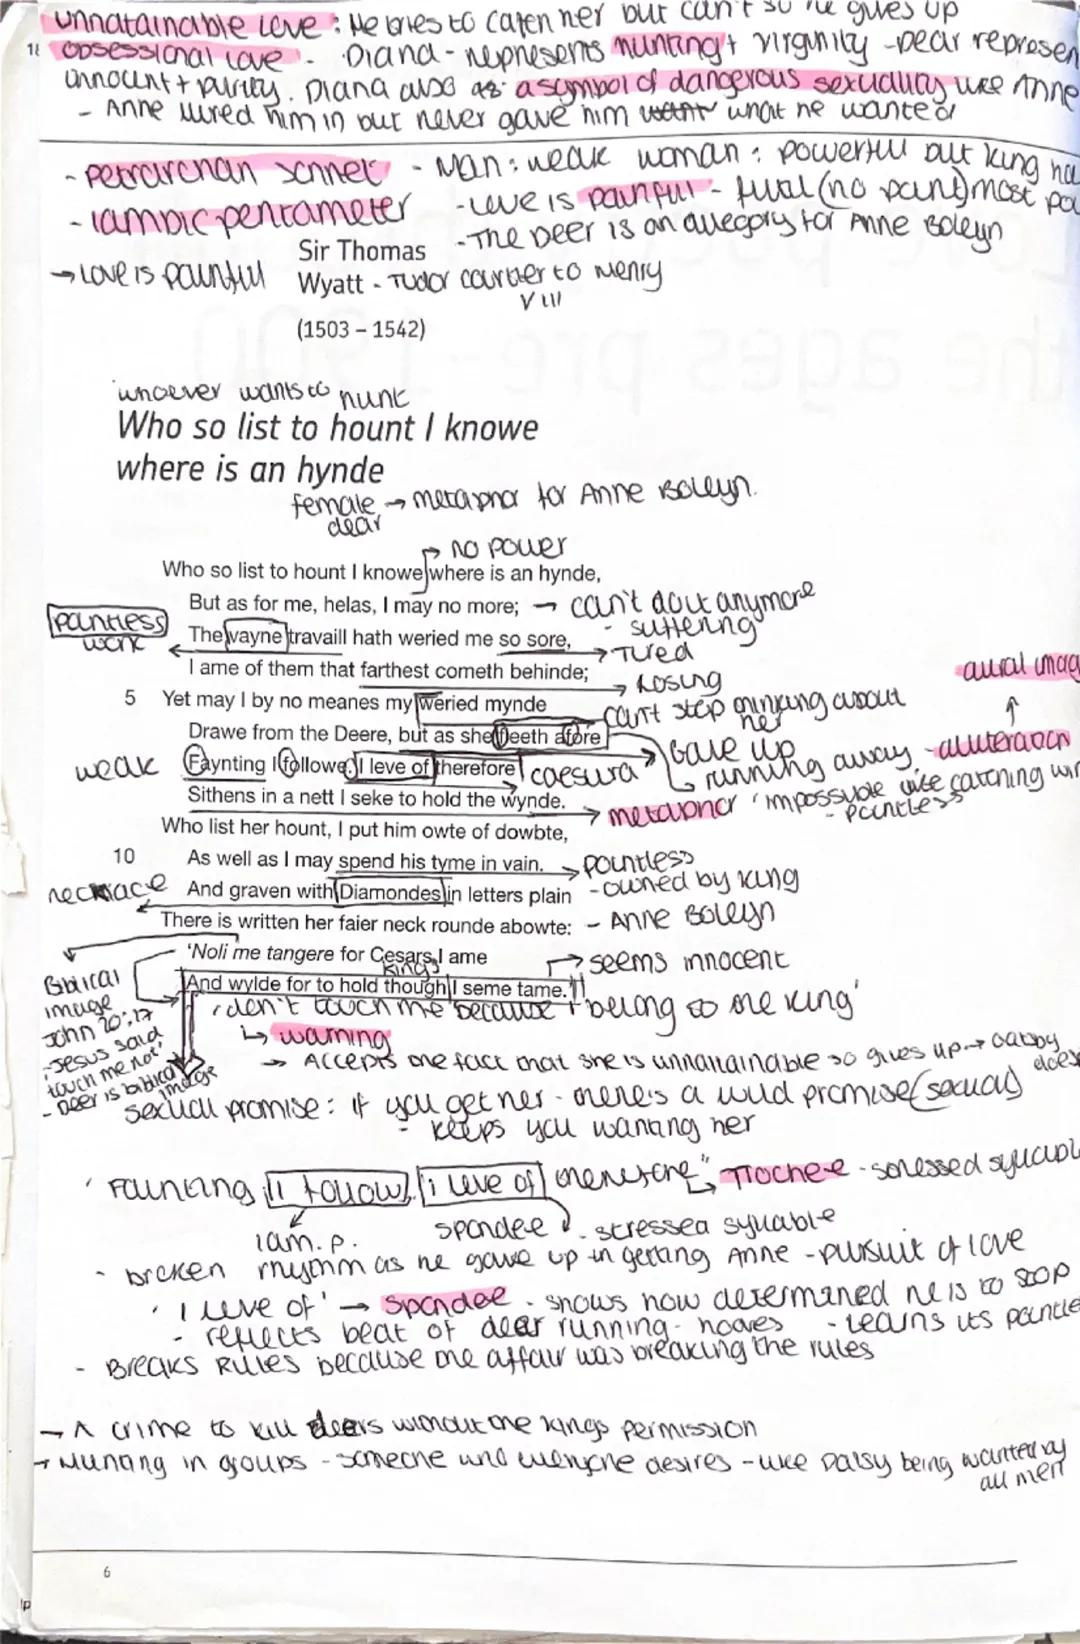 unnatainable love : He tries to catch her but can't so he gives up
18 obsessional love . Diana - represents hunting + virginity - Dear represen
innocent + purity . Diana also as a symbol of dangerous sexuality like Anne
- Anne lured him in but never gave him what he wanted
- petrarchan sonnet - Man : weak woman : powerful but king ha
- iambic pentameter - Love is painful - final (no paint) most pa
Sir Thomas - The Deer is an allegory for Anne Boleyn
→ Love is painful Wyatt - Tudor courtier to Henry
VIII
(1503 – 1542)
'whoever wants to hunt
Who so list to hount I knowe
where is an hynde
female → metaphor for Anne Boleyn.
dear
→ no power
Who so list to hount I knowe where is an hynde,
But as for me, helas, I may no more; → can't do it anymore
- suffering
pointless The vayne travaill hath weried me so sore,
work → Tired
I ame of them that farthest cometh behinde;
→ Losing
aural imag
5 Yet may I by no meanes my weried mynde
can't stop thinking about her
Drawe from the Deere, but as she fleeth afore
Gave up
running away - alliteration
weak Faynting I followe, I leve of therefore caesura
Sithens in a nett I seke to hold the wynde.
→ metaphor 'impossible like catching win
- pointless
Who list her hount, I put him owte of dowbte,
10 As well as I may spend his tyme in vain. → pointless
necklace And graven with Diamondes in letters plain - owned by king
There is written her faier neck rounde abowte: - Anne Boleyn
'Noli me tangere for Cesars I ame
kings
→ seems innocent
And wylde for to hold though I seme tame.'
Biblical
image
John 20:17
- Jesus said
'touch me not'
- Deer is biblical
image
'don't touch me because I belong to the king'
↳ warning
→ Accepts the fact that she is unnatainable so gives up → Gatsby
does
sexual promise : if you get her - there's a wild promise (sexual)
- keeps you wanting her
'Fainting I follow, I leve of therefore" → Trochee - stressed syllabl
iam. p. spondee . stressed syllable
- broken rhythm as he gave up in getting Anne - pursuit of love
. 'I leve of' → Spondee . shows how determined he is to stop
- reflects beat of dear running - hooves - learns its pointle
- Breaks Rules because the affair was breaking the rules
→ A crime to kill deers without the kings permission
→ Hunting in groups - someone who everyone desires - like Daisy being wanted by
all men
6